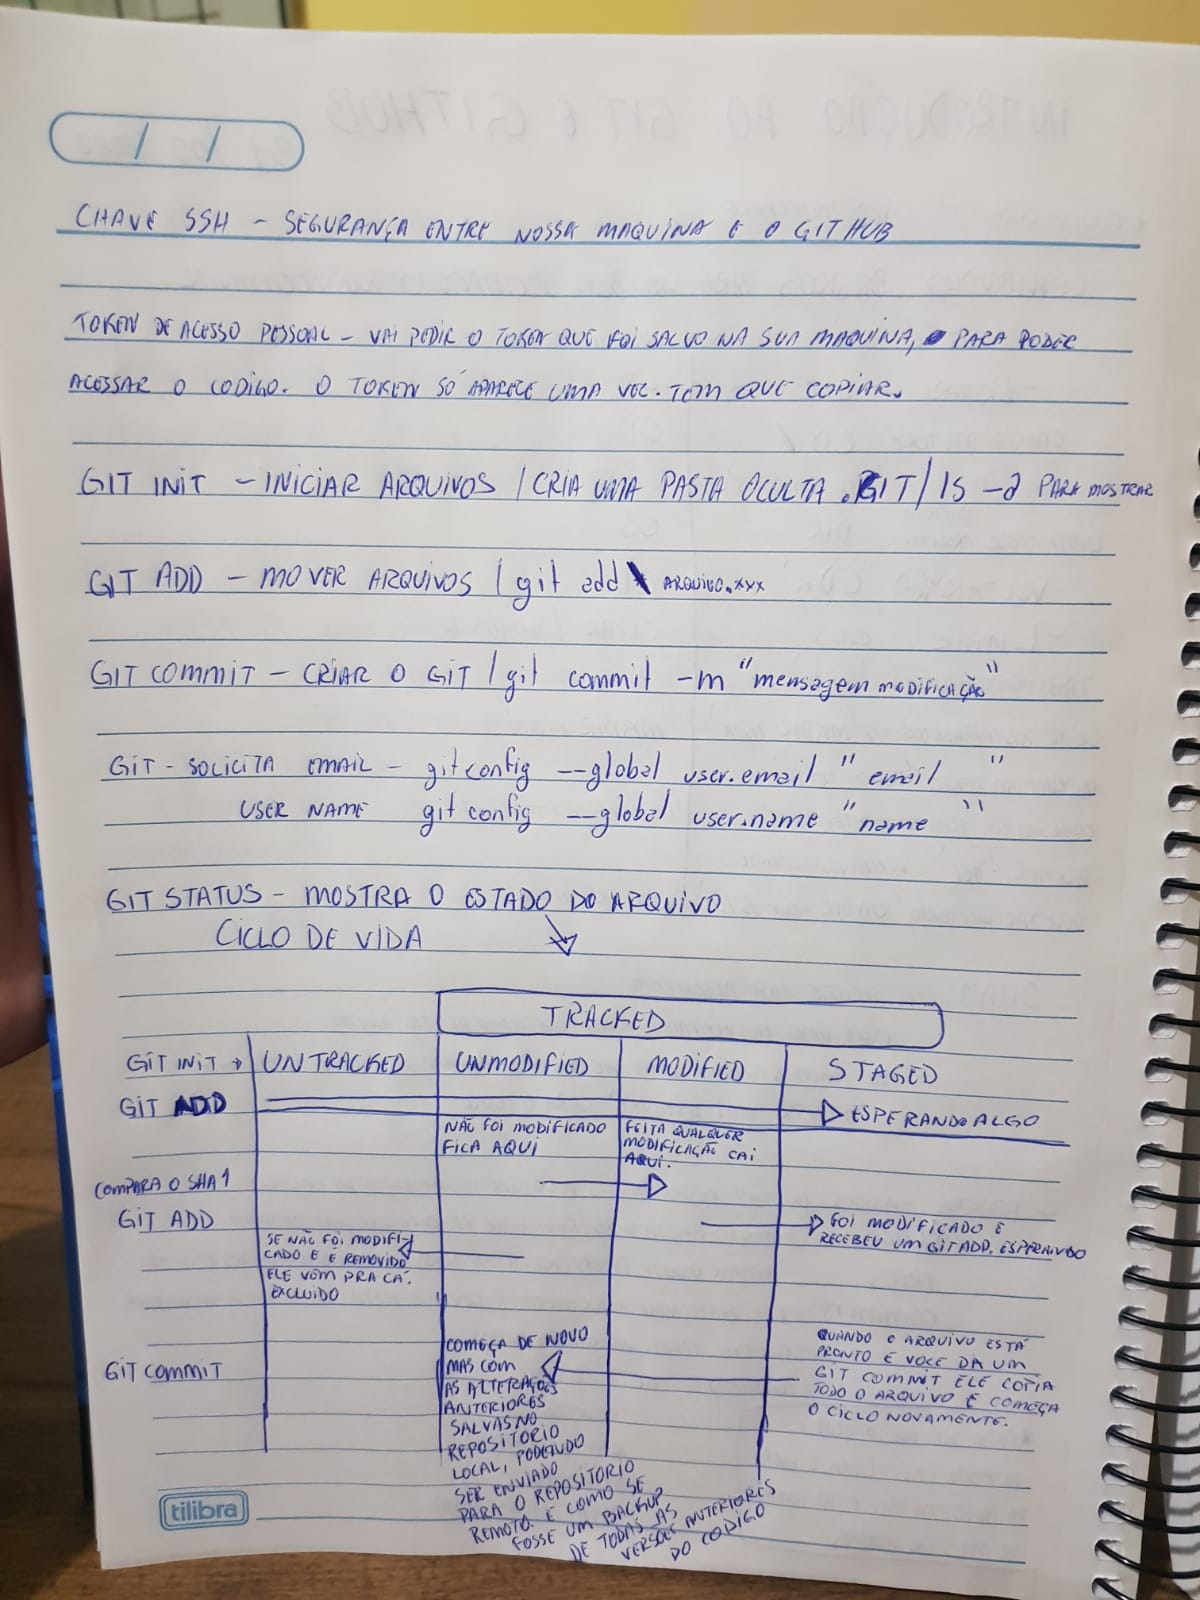 CHAVE SSH - SEGURANÇA ENTRE NOSSA MAQUINA E O GITHUB
TOKEN DE ACESSO PESSOAL - VAI PEDIR O TOKEN QUE FOI SALVO NA SUA MAQUINA, PARA PODER
ACESSAR O CODIGO. O TOKEN SÓ APARECE UMA VEZ. TEM QUE COPIAR.
GIT INIT - INICIAR ARQUIVOS / CRIA UMA PASTA OCULTA .GIT / ls -a PARA MOSTRAR
GIT ADD - MOVER ARQUIVOS / git add ARQUIVO.xxx
GIT COMMIT - CRIAR O GIT / git commit -m "mensagem modificação"
GIT - SOLICITA EMAIL - git config --global user.email "email "
USER NAME git config --global user.name "name "
GIT STATUS - MOSTRA O ESTADO DO ARQUIVO
CICLO DE VIDA
TRACKED
GIT INIT → UNTRACKED UNMODIFIED MODIFIED STAGED
GIT ADD ESPERANDO ALGO
NÃO FOI MODIFICADO
FICA AQUI
FEITA QUALQUER
MODIFICAÇÃO CAI
AQUI.
COMPARA O SHA1
GIT ADD
FOI MODIFICADO E
RECEBEU UM GIT ADD. ESPERANDO
SE NÃO FOI MODIFI-
CADO E É REMOVIDO
ELE VEM PRA CÁ.
EXCLUIDO
GIT COMMIT
COMEÇA DE NOVO
MAS COM
AS ALTERAÇÕES
ANTERIORES
SALVAS NO
REPOSITORIO
LOCAL, PODENDO
SER ENVIADO
PARA O REPOSITORIO
REMOTO. É COMO SE
FOSSE UM BACKUP
DE TODAS AS
VERSÕES ANTERIORES
DO CODIGO
QUANDO O ARQUIVO ESTÁ
PRONTO E VOCE DA UM
GIT COMMIT ELE COPIA
TODO O ARQUIVO E COMEÇA
O CICLO NOVAMENTE.
tilibra